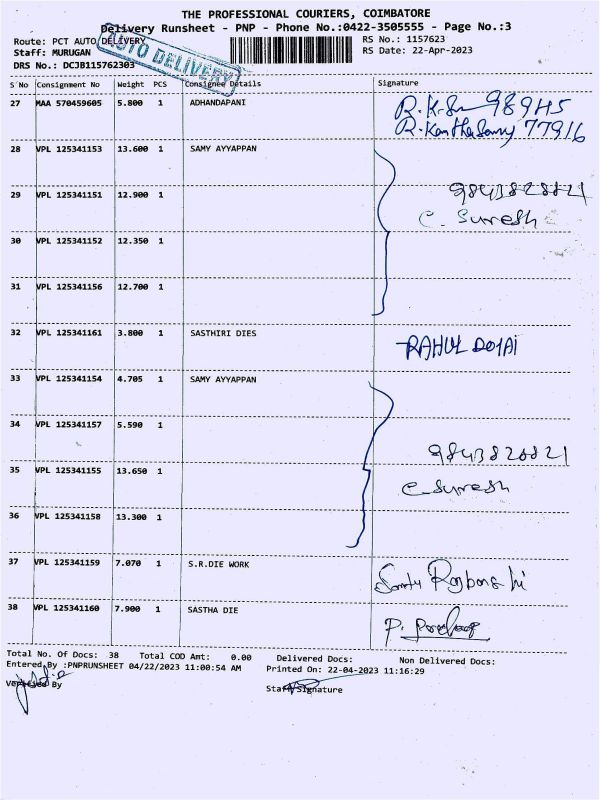 THE PROFESSIONAL COURIERS, COIMBATORE
Delivery Runsheet - PNP - Phone No.:0422-3505555 - Page No.:3
Route: PCT AUTO DELIVERY RS No.: 1157623
Staff: MURUGAN RS Date: 22-Apr-2023
DRS No.: DCJB115762303
AUTO DELIVERY
S No Consignment No Weight PCS Consignee Details Signature
27 MAA 570459605 5.800 1 ADHANDAPANI 98945
R. Kanthasamy 77916
28 VPL 125341153 13.600 1 SAMY AYYAPPAN
29 VPL 125341151 12.900 1 9843828821
C. Suresh
30 VPL 125341152 12.350 1
31 VPL 125341156 12.700 1
32 VPL 125341161 3.800 1 SASTHIRI DIES RAHUL
33 VPL 125341154 4.705 1 SAMY AYYAPPAN
34 VPL 125341157 5.590 1 9843828821
35 VPL 125341155 13.650 1 C. Suresh
36 VPL 125341158 13.300 1
37 VPL 125341159 7.070 1 S.R.DIE WORK
38 VPL 125341160 7.900 1 SASTHA DIE P.
Total No. Of Docs: 38 Total COD Amt: 0.00 Delivered Docs: Non Delivered Docs:
Entered By :PNPRUNSHEET 04/22/2023 11:00:54 AM Printed On: 22-04-2023 11:16:29
Verified By Staff Signature